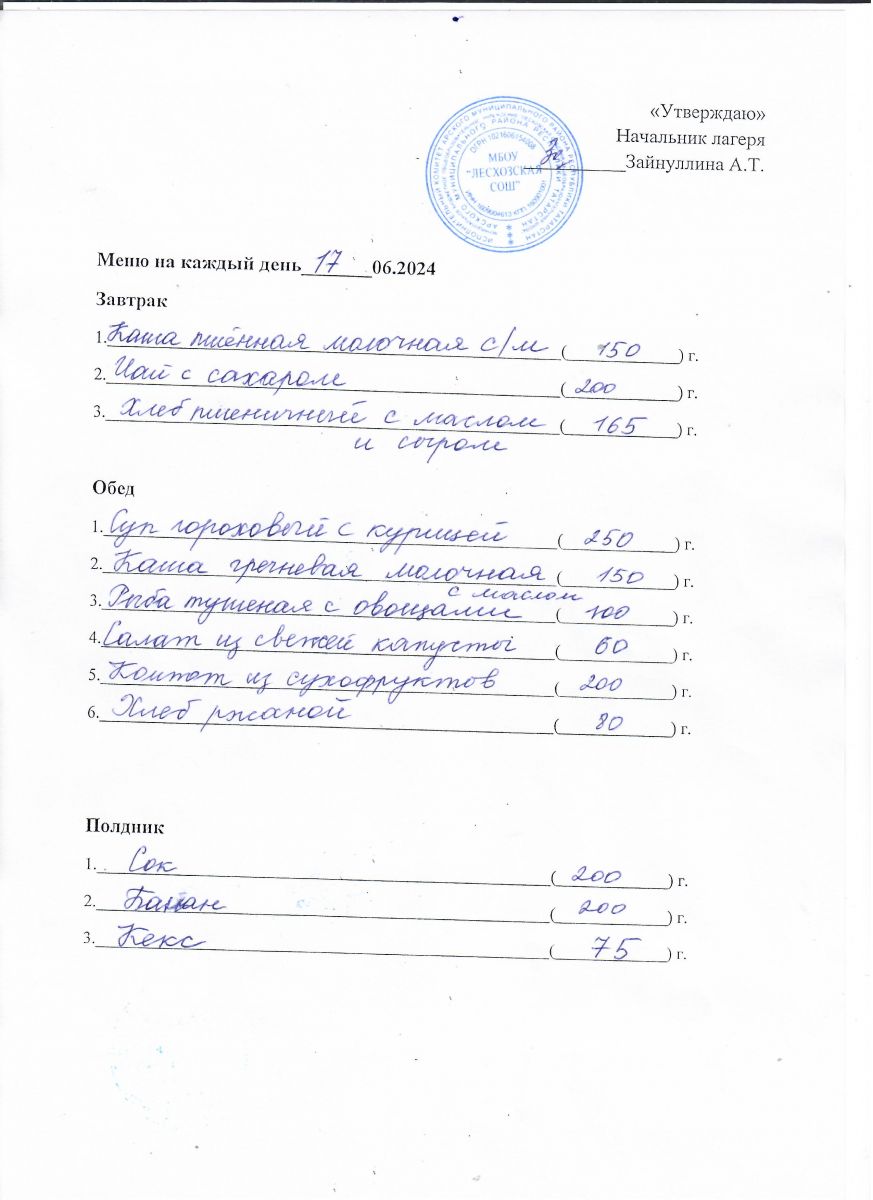 «Утверждаю»
Начальник лагеря
Зайнуллина А.Т.
ИСПОЛНИТЕЛЬНЫЙ КОМИТЕТ АРСКОГО МУНИЦИПАЛЬНОГО РАЙОНА РЕСПУБЛИКИ ТАТАРСТАН
ОГРН 1021606154008
МБОУ
"ЛЕСХОЗСКАЯ
СОШ"
Меню на каждый день 17 06.2024
Завтрак
1. Каша пшённая молочная с/м (150) г.
2. Чай с сахаром (200) г.
3. Хлеб пшеничный с маслом (165) г.
и сыром
Обед
1. Суп гороховый с курицей (250) г.
2. Каша гречневая молочная (150) г.
с маслом
3. Рыба тушеная с овощами (100) г.
4. Салат из свежей капусты (60) г.
5. Компот из сухофруктов (200) г.
6. Хлеб ржаной (80) г.
Полдник
1. Сок (200) г.
2. Банан (200) г.
3. Кекс (75) г.